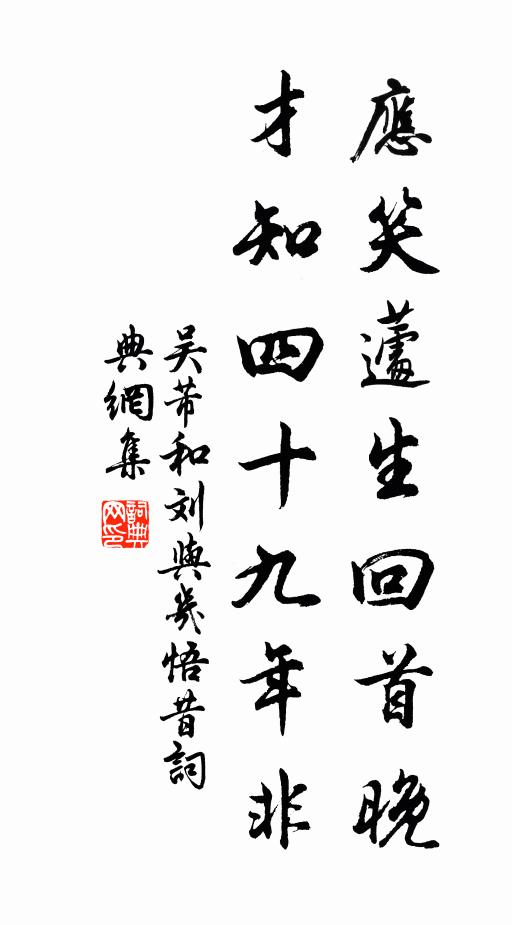 應笑蘧生回首晚
才知四十九年非
吴芾和刘與幾悟昔詞
典網集
詞典
网印